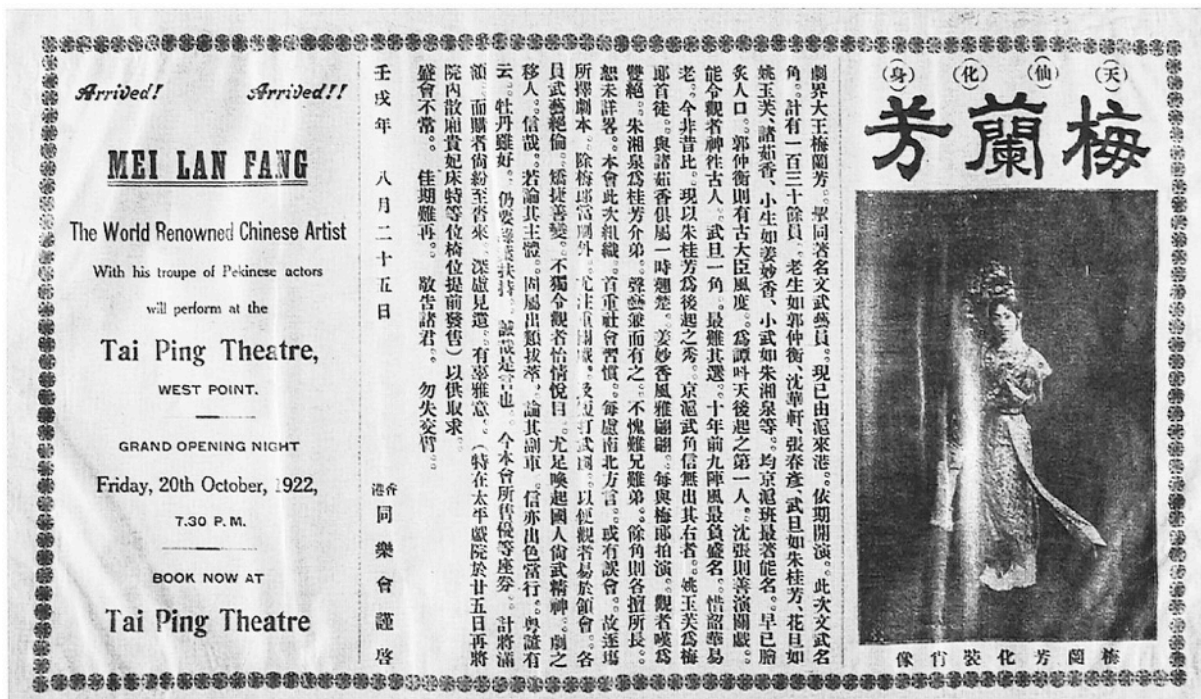 (天)(仙)(化)(身)
梅蘭芳
梅蘭芳化裝肖像
劇界大王梅蘭芳。聯同著名文武藝員。現已由滬來港。依期開演。此次文武名
角。計有一百三十餘員。老生如郭仲衡、沈華軒、張春彥、武旦如朱桂芳、花旦如
姚玉芙、諸茹香、小生如姜妙香、小武如朱湘泉等。均京滬班最著能名。早已膾
炙人口。郭仲衡則有古大臣風度。爲譚叫天後起之第一人。沈張則善演關戲。
能令觀者神往古人。武旦一角。最難其選。十年前九陣風最負盛名。惜韶華易
老。今非昔比。現以朱桂芳爲後起之秀。京滬武角信無出其右者。姚玉芙爲梅
郎首徒。與諸茹香俱屬一時翹楚。姜妙香風雅翩翩。每與梅郎拍演。觀者嘆爲
雙絕。朱湘泉爲桂芳介弟。聲藝兼而有之。不愧難兄難弟。餘角則各擅所長。
恕未詳畧。本會此次組織。首重社會習慣。每慮南北方言。或有誤會。故逐場
所擇劇本、除梅郎當劇外。尤注重關戲。及短打武劇。以便觀者易於領會。各
員武藝絕倫。矯捷善變。不獨令觀者怡情悅目。尤足喚起國人尙武精神。劇之
移人。信哉。若論其主體。固屬出類拔萃。論其副車。信亦出色當行。粵諺有
云。牡丹雖好。仍要綠葉扶持。誠哉是言也。今本會所售優等座劵。計將滿
額。而購者尙紛至沓來。深慮見遺。有辜雅意。(特在太平戲院於廿五日再將
院內散廂貴妃床特等位椅位提前發售)以供取求。
盛會不常。佳期難再。敬告諸君。勿失交臂。
壬戌年 八月二十五日 香港同樂會謹啓
Arrived! Arrived!!
MEI LAN FANG
The World Renowned Chinese Artist
With his troupe of Pekinese actors
will perform at the
Tai Ping Theatre,
WEST POINT.
GRAND OPENING NIGHT
Friday, 20th October, 1922,
7.30 P.M.
BOOK NOW AT
Tai Ping Theatre